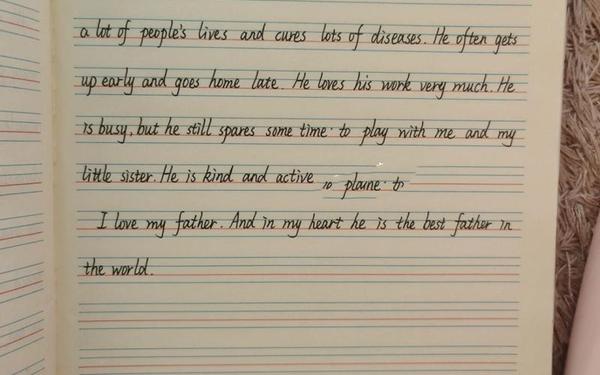 a lot of people's lives and cures lots of diseases. He often gets
up early and goes home late. He loves his work very much. He
is busy, but he still spares some time to play with me and my
little sister. He is kind and active
I love my father. And in my heart he is the best father in
the world.